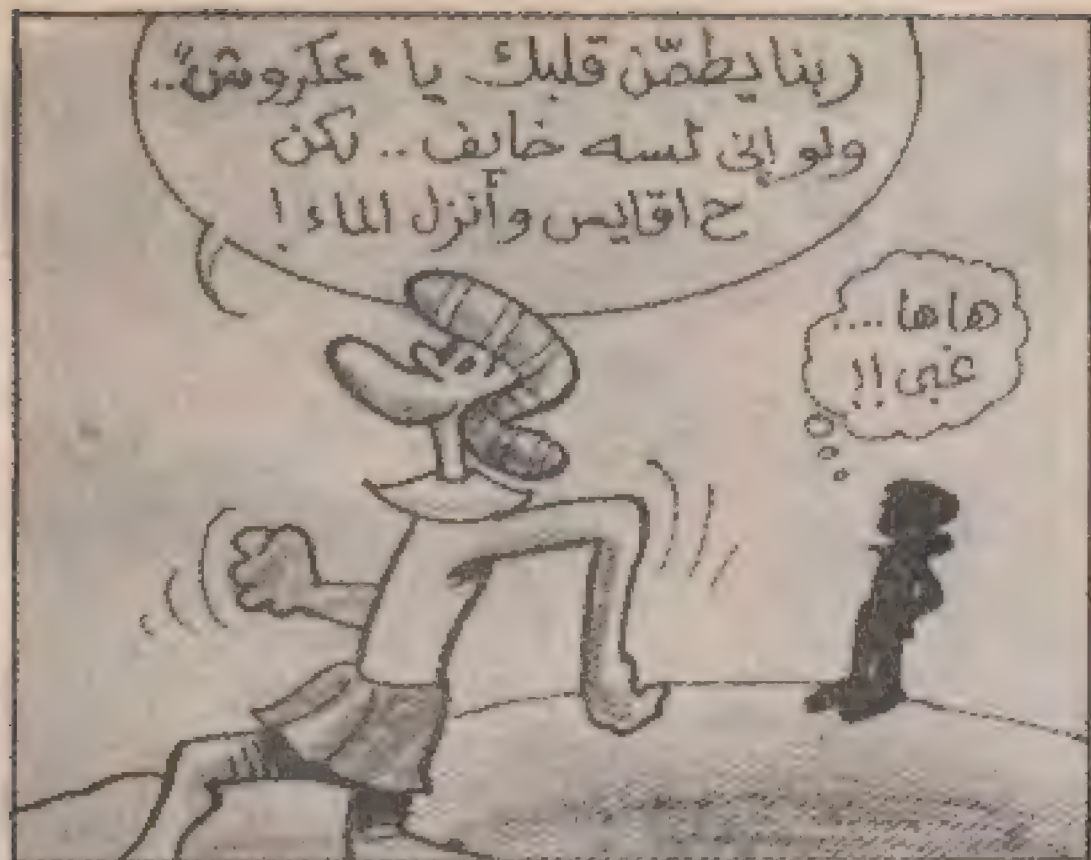 ربنا يطمّن قلبك يا "عكروش"..
ولو إنى لسه خايف .. لكن
ح اقايس وأنزل الماء !
ها ها ....
غبى !!